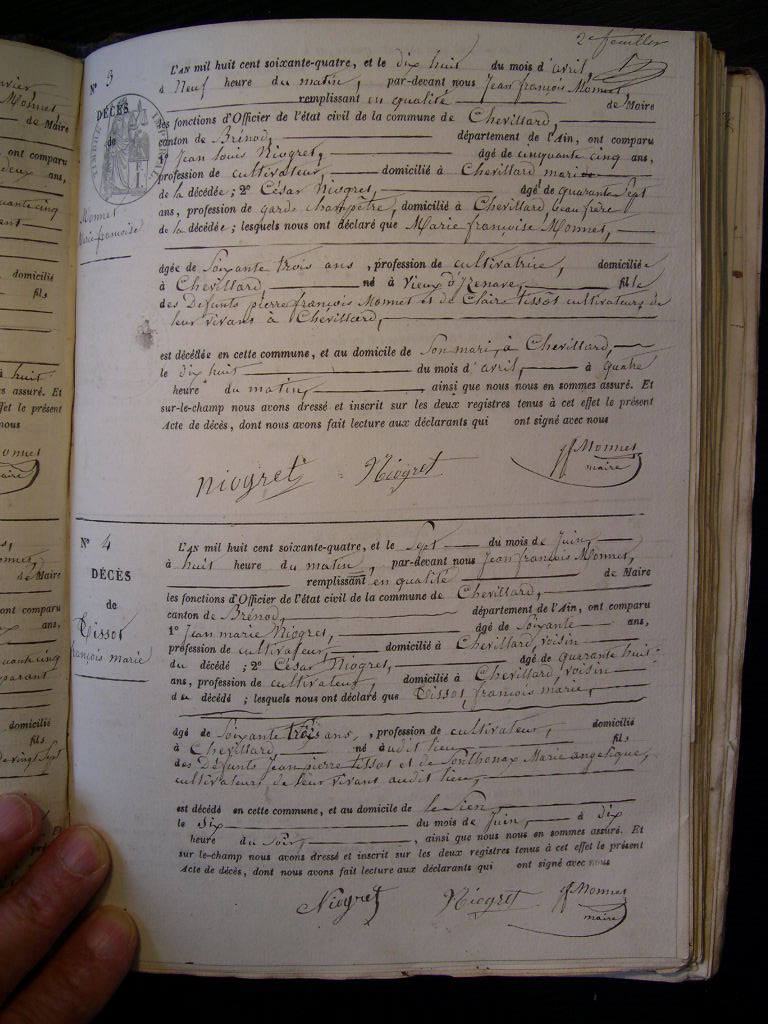 2e feuillet
N° 3
DÉCÈS
de
Monnet
Marie françoise
L'AN mil huit cent soixante-quatre, et le dix huit du mois d'avril,
à Neuf heure du matin, par-devant nous Jean françois Monnet,
remplissant en qualité de Maire
les fonctions d'Officier de l'état civil de la commune de Chevillard,
canton de Brénod, département de l'Ain, ont comparu
1° Jean Louis Niogret, âgé de cinquante cinq ans,
profession de cultivateur, domicilié à Chevillard mari
de la décédée; 2° César Niogret, âgé de quarante Sept
ans, profession de garde champêtre, domicilié à Chevillard beau frère
de la décédée; lesquels nous ont déclaré que Marie françoise Monnet,
âgée de Soixante trois ans, profession de cultivatrice, domiciliée
à Chevillard, né à Vieux d'Izenave, fille
des Defunts pierre françois Monnet et de Claire tissot cultivateurs de
leur vivant à Chevillard,
est décédée en cette commune, et au domicile de Son mari, à Chevillard,
le dix huit du mois d'avril, à quatre
heure du matin, ainsi que nous nous en sommes assuré. Et
sur-le-champ nous avons dressé et inscrit sur les deux registres tenus à cet effet le présent
Acte de décès, dont nous avons fait lecture aux déclarants qui ont signé avec nous
niogret Niogret Jf Monnet
maire
N° 4
DÉCÈS
de
Tissot
françois marie
L'AN mil huit cent soixante-quatre, et le Sept du mois de Juin,
à huit heure du matin, par-devant nous Jean françois Monnet,
remplissant en qualité de Maire
les fonctions d'Officier de l'état civil de la commune de Chevillard,
canton de Brénod, département de l'Ain, ont comparu
1° Jean marie Niogret, âgé de Soixante ans,
profession de cultivateur, domicilié à Chevillard, voisin
du décédé; 2° César Niogret, âgé de quarante huit
ans, profession de cultivateur, domicilié à Chevillard, voisin
du décédé; lesquels nous ont déclaré que Tissot françois marie,
âgé de Soixante trois ans, profession de cultivateur, domicilié
à Chevillard, né audit lieu, fils
des Défunts Jean pierre tissot et de Sonthonax Marie angelique,
cultivateurs de leur vivant audit lieu,
est décédé en cette commune, et au domicile de le Sien,
le Six du mois de Juin, à dix
heure du Soir, ainsi que nous nous en sommes assuré. Et
sur-le-champ nous avons dressé et inscrit sur les deux registres tenus à cet effet le présent
Acte de décès, dont nous avons fait lecture aux déclarants qui ont signé avec nous
Niogret Niogret Jf Monnet
maire